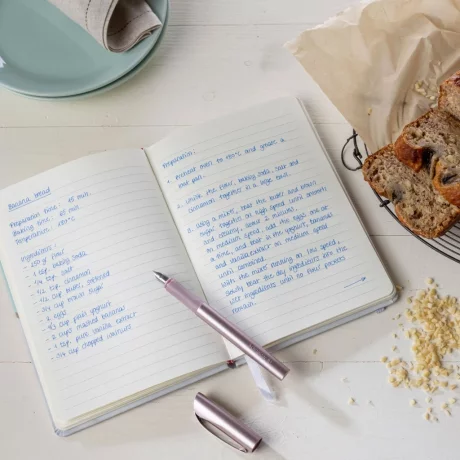 Banana bread
Preparation time: 15 min.
Baking time: 65 min.
Temperature: 180°C
Ingredients:
- 250 gr flour
- 1 tsp. baking soda
- 1/4 tsp. salt
- 3/4 tsp. cinnamon
- 1/2 cup butter, softened
- 3/4 cup brown sugar
- 2 eggs
- 1/2 cup plain yoghurt
- 2 cups mashed bananas
- 1 tsp. pure vanilla extract
- 3/4 cup chopped walnuts
Preparation:
1. Preheat oven to 180°C and grease a
loaf pan.
2. Whisk the flour, baking soda, salt and
cinnamon together in a large bowl.
3. Using a mixer, beat the butter and brown
sugar together on high speed until smooth
and creamy, some 2 minutes.
on medium speed, add the eggs one at
a time, and beat in the yoghurt, bananas
and vanilla extract on medium speed
until combined.
With the mixer running on low speed,
slowly beat the dry ingredients into the
wet ingredients until no flour pockets
remain.